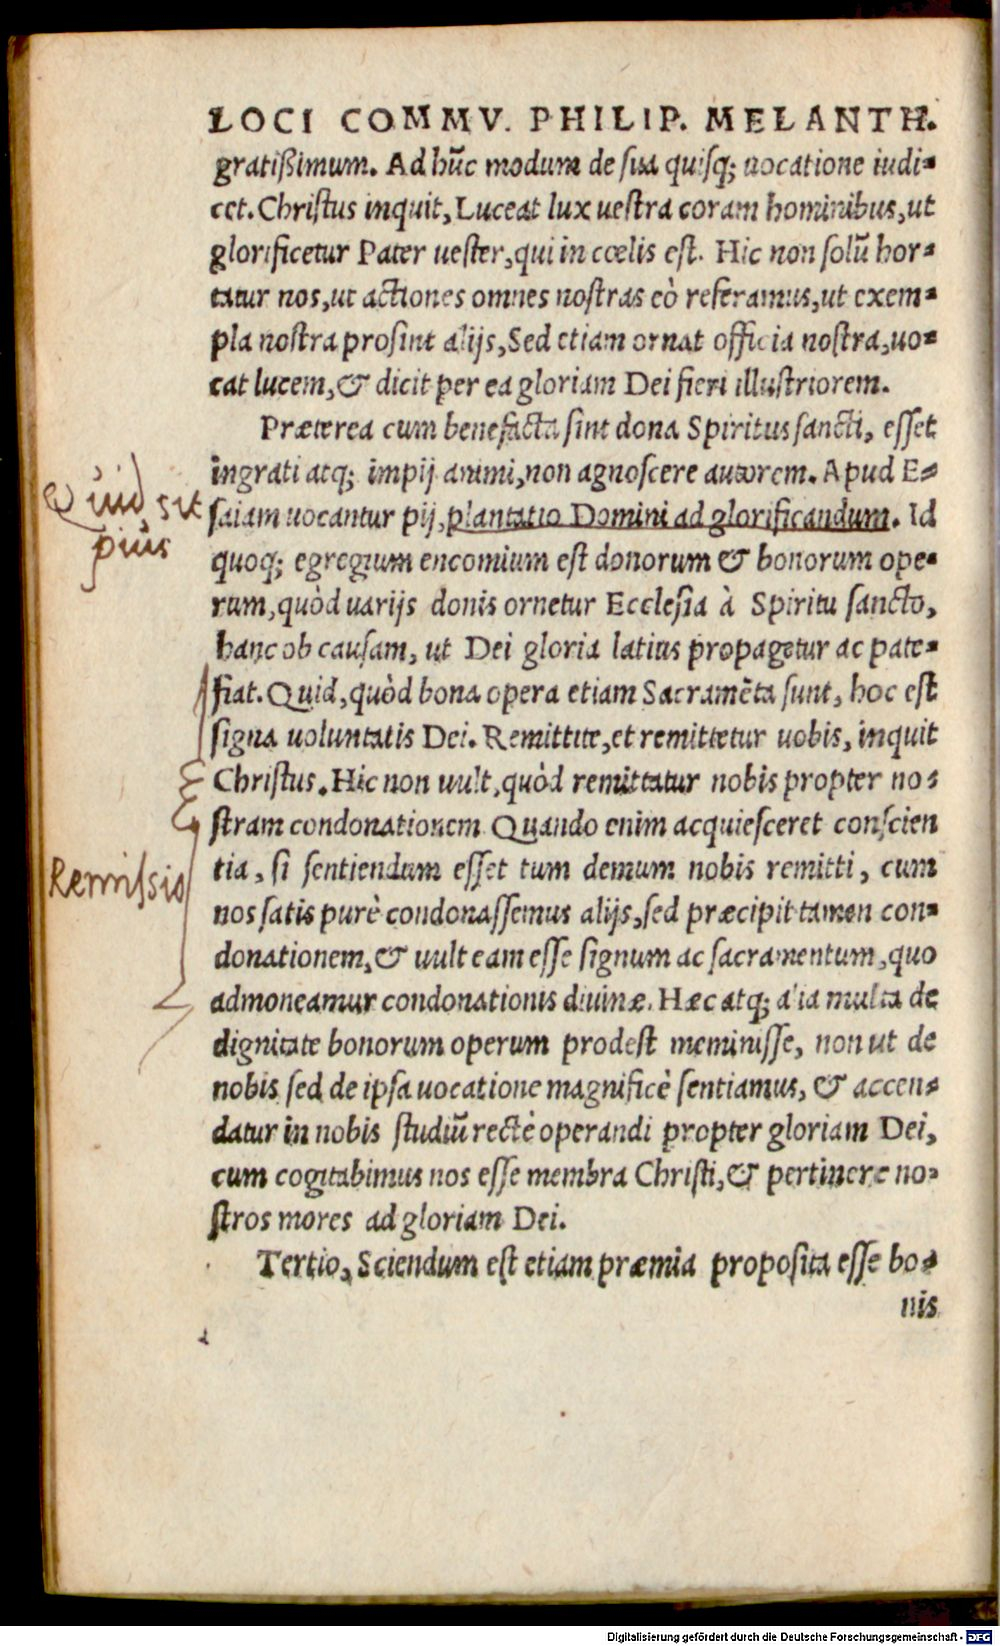 LOCI COMMV. PHILIP. MELANTH.
gratißimum. Ad hūc modum de sua quisq; uocatione iudi-
cet. Christus inquit, Luceat lux uestra coram hominibus, ut
glorificetur Pater uester, qui in cœlis est. Hic non solū hor-
tatur nos, ut actiones omnes nostras eò referamus, ut exem-
pla nostra prosint alijs, Sed etiam ornat officia nostra, uo-
cat lucem, & dicit per ea gloriam Dei fieri illustriorem.
Præterea cum benefacta sint dona Spiritus sancti, esset
ingrati atq; impij animi, non agnoscere autorem. Apud E-
Quid sit
saiam uocantur pij, plantatio Domini ad glorificandum. Id
pius
quoq; egregium encomium est donorum & bonorum ope-
rum, quòd uarijs donis ornetur Ecclesia à Spiritu sancto,
hanc ob causam, ut Dei gloria latius propagetur ac pate-
fiat. Quid, quòd bona opera etiam Sacramēta sunt, hoc est
signa uoluntatis Dei. Remittite, et remittetur uobis, inquit
Christus. Hic non uult, quòd remittatur nobis propter no-
stram condonationem Quando enim acquiesceret conscien
tia, si sentiendum esset tum demum nobis remitti, cum
Remissio
nos satis purè condonassemus alijs, sed præcipit tamen con-
donationem, & uult eam esse signum ac sacramentum, quo
admoneamur condonationis diuinæ. Hæc atq; alia multa de
dignitate bonorum operum prodest meminisse, non ut de
nobis sed de ipsa uocatione magnificè sentiamus, & accen-
datur in nobis studiū rectè operandi propter gloriam Dei,
cum cogitabimus nos esse membra Christi, & pertinere no-
stros mores ad gloriam Dei.
Tertio, Sciendum est etiam præmia proposita esse bo-
nis
Digitalisierung gefördert durch die Deutsche Forschungsgemeinschaft - DFG